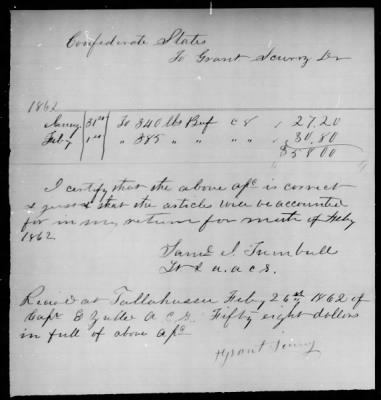 Confederate States
To Grant Scurry Dr
1862
January 31st To 340 lbs Beef c 8 27.20
Feby 1st " 385 " " " " 30.80
$58.00
I certify that the above a/c is correct
& just & that the articles will be accounted
for in my return for month of Feby
1862.
James S. Turnbull
Lt & a.a.c.s.
Rec'd at Tallahassee Feby 26th 1862 of
Capt E Yulee A.C.S. Fifty eight dollars
in full of above a/c